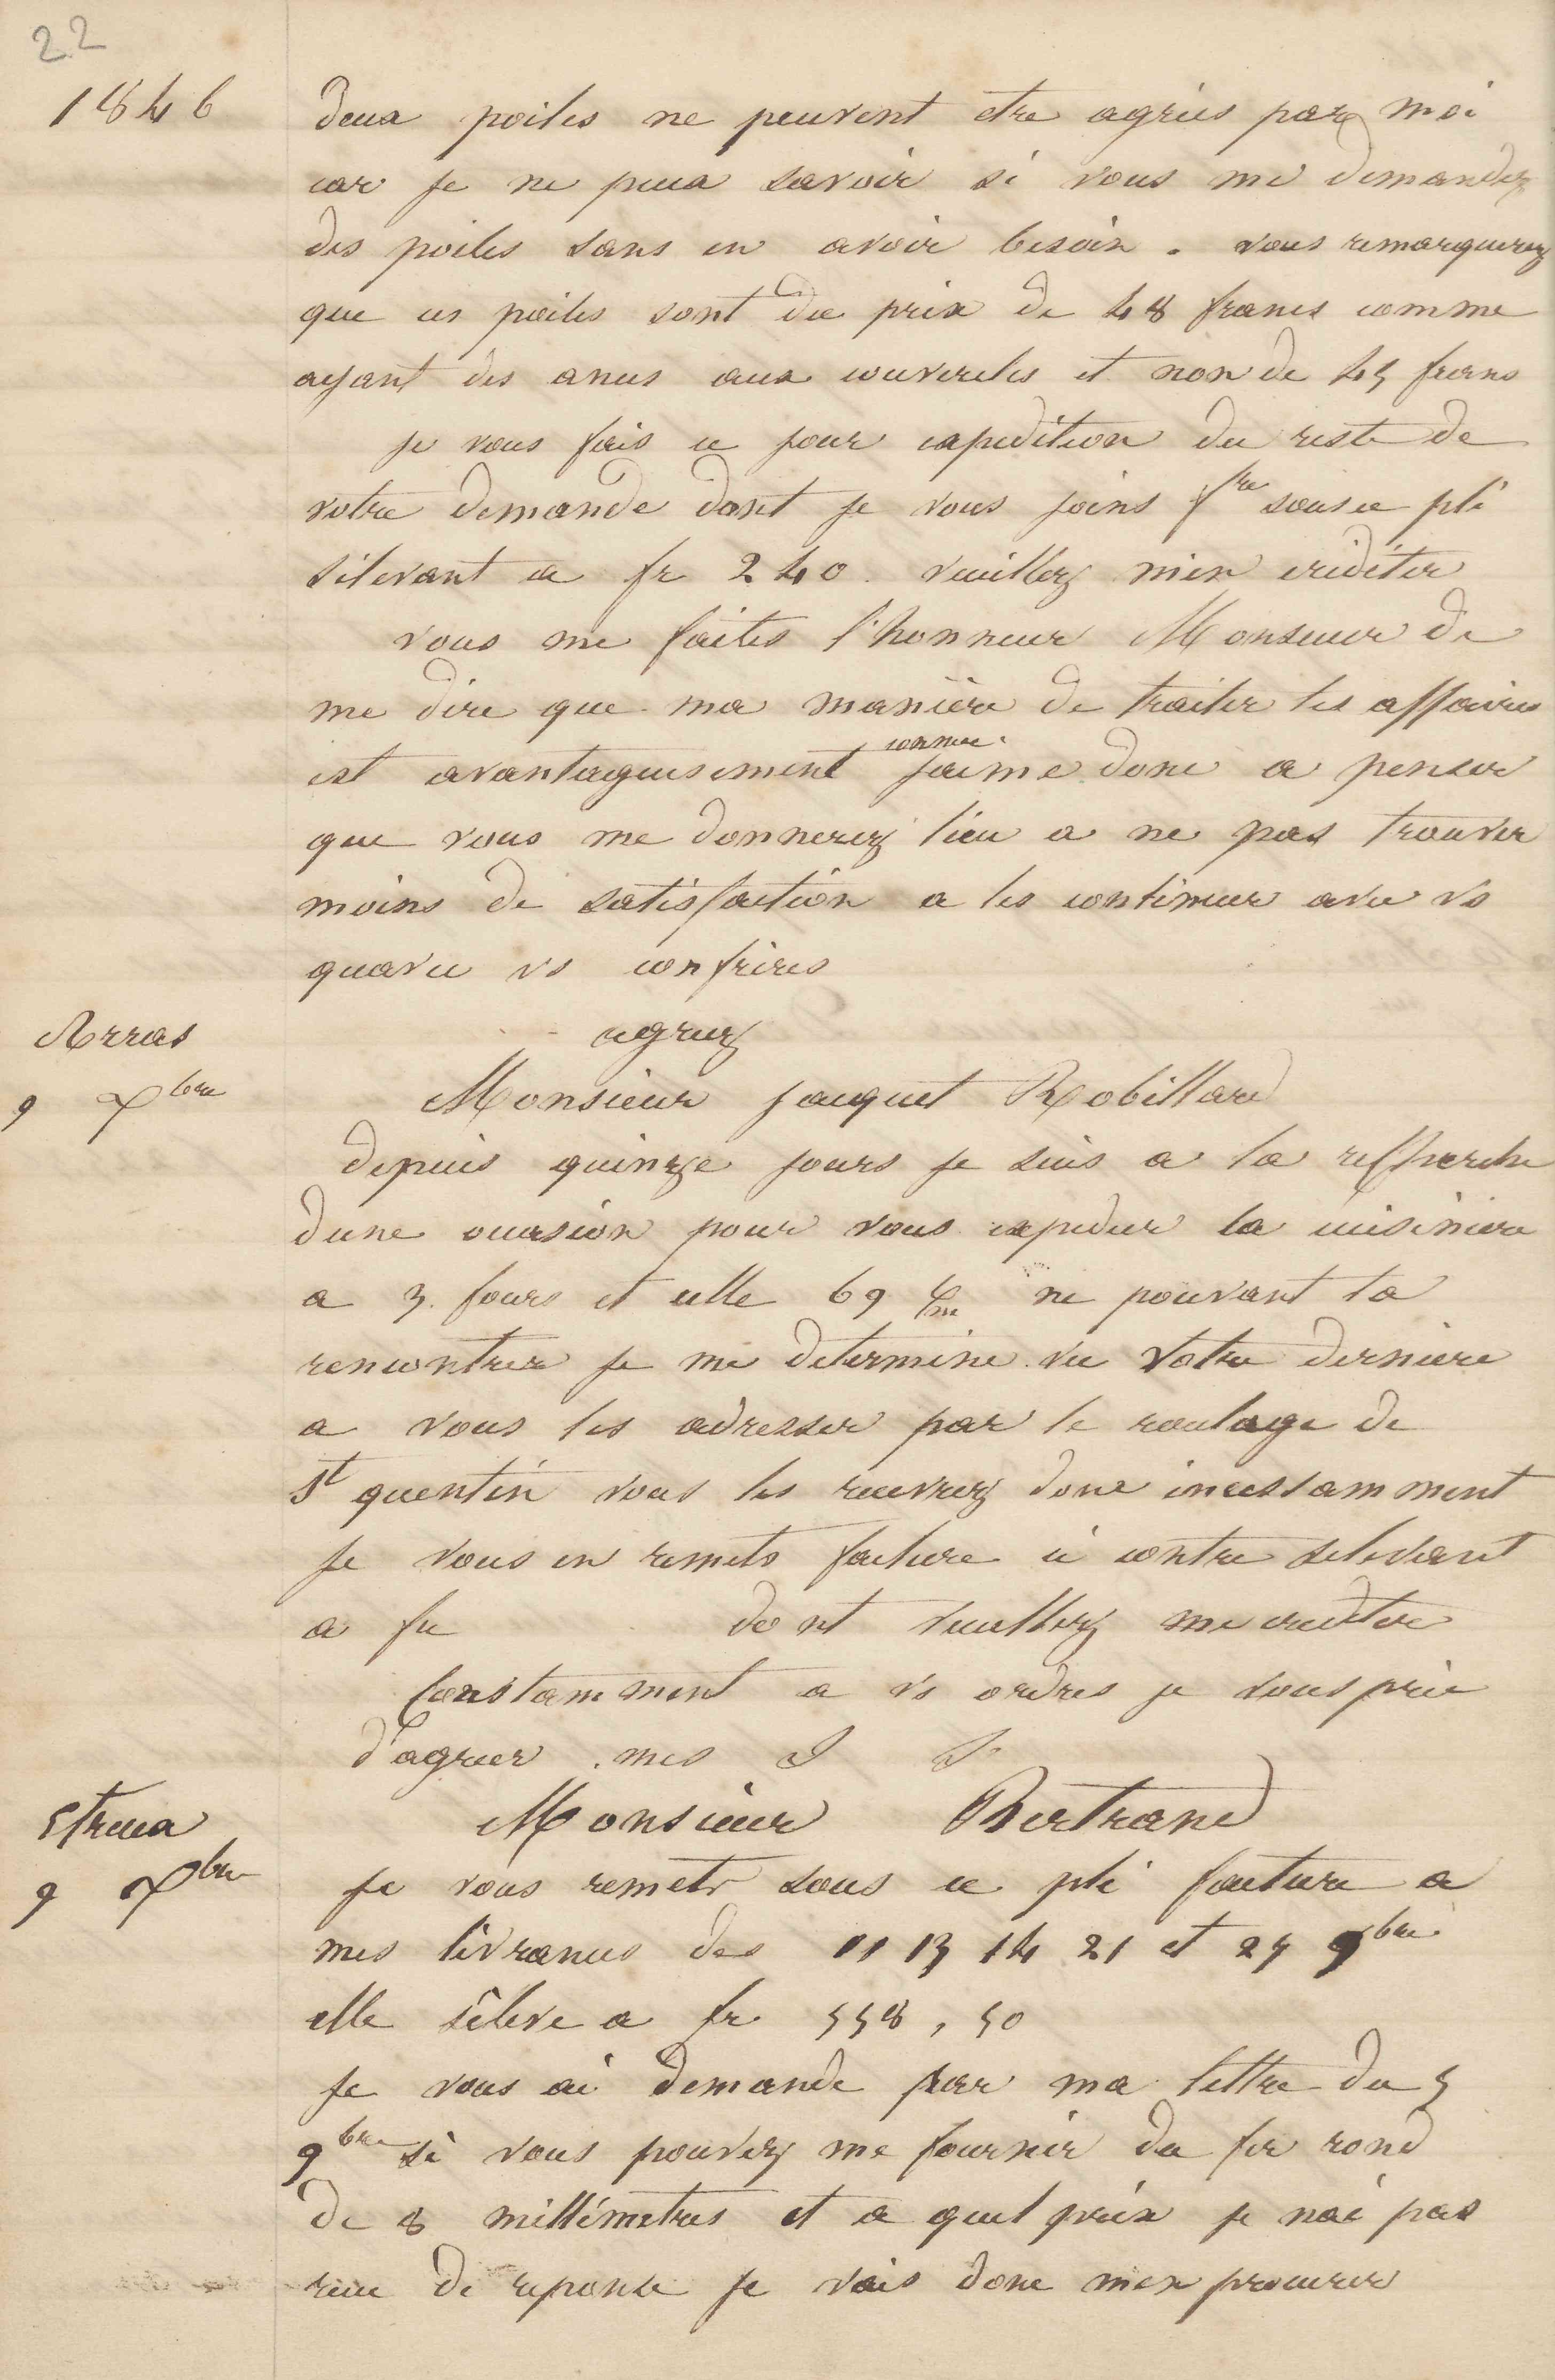 22
1846
deux poiles ne peuvent etre agrées par moi
car je ne peux savoir si vous me demandez
des poiles sans en avoir besoin. vous remarquerez
que ces poiles sont du prix de 48 francs comme
ayant des ances aux couvercles et non de 45 francs
je vous fais ce jour expedition du reste de
votre demande dont je vous joins fre sous ce pli
sélevant a fr 240. veuillez men créditer
vous me faites l'honneur Monsieur de
me dire que ma manière de traiter les affaires
connue
est avantageusement jaime donc a penser
que vous me donnerez lieu a ne pas trouver
moins de satisfaction a les continuer avec vs
quavec vs confrères
agreez
Arras
9 Xbre
Monsieur jacquet Robillard
depuis quinze jours je suis a la rescherche
dune occasion pour vous expedier la cuisinière
a 3 fours et celle 69 c/m ne pouvant la
rencontrer je me determine vu votre derniere
a vous les adresser par le roulage de
St quentin vous les recevrez donc incessamment
je vous en remets facture ci contre selevant
a fr dont veuillez me crediter
Constamment a vs ordres je vous prie
d'agreer mes S S
Etreux
9 Xbre
Monsieur Bertrand
je vous remets sous ce pli facture a
mes livrances des 11 13 14 21 et 25 9bre
elle sélève a fr 558,50
je vous ai demande par ma lettre du 5
9bre si vous pouvez me fournir du fer rond
de 8 millimetres et a quel prix je nai pas
recu de reponse je vais donc men procurer